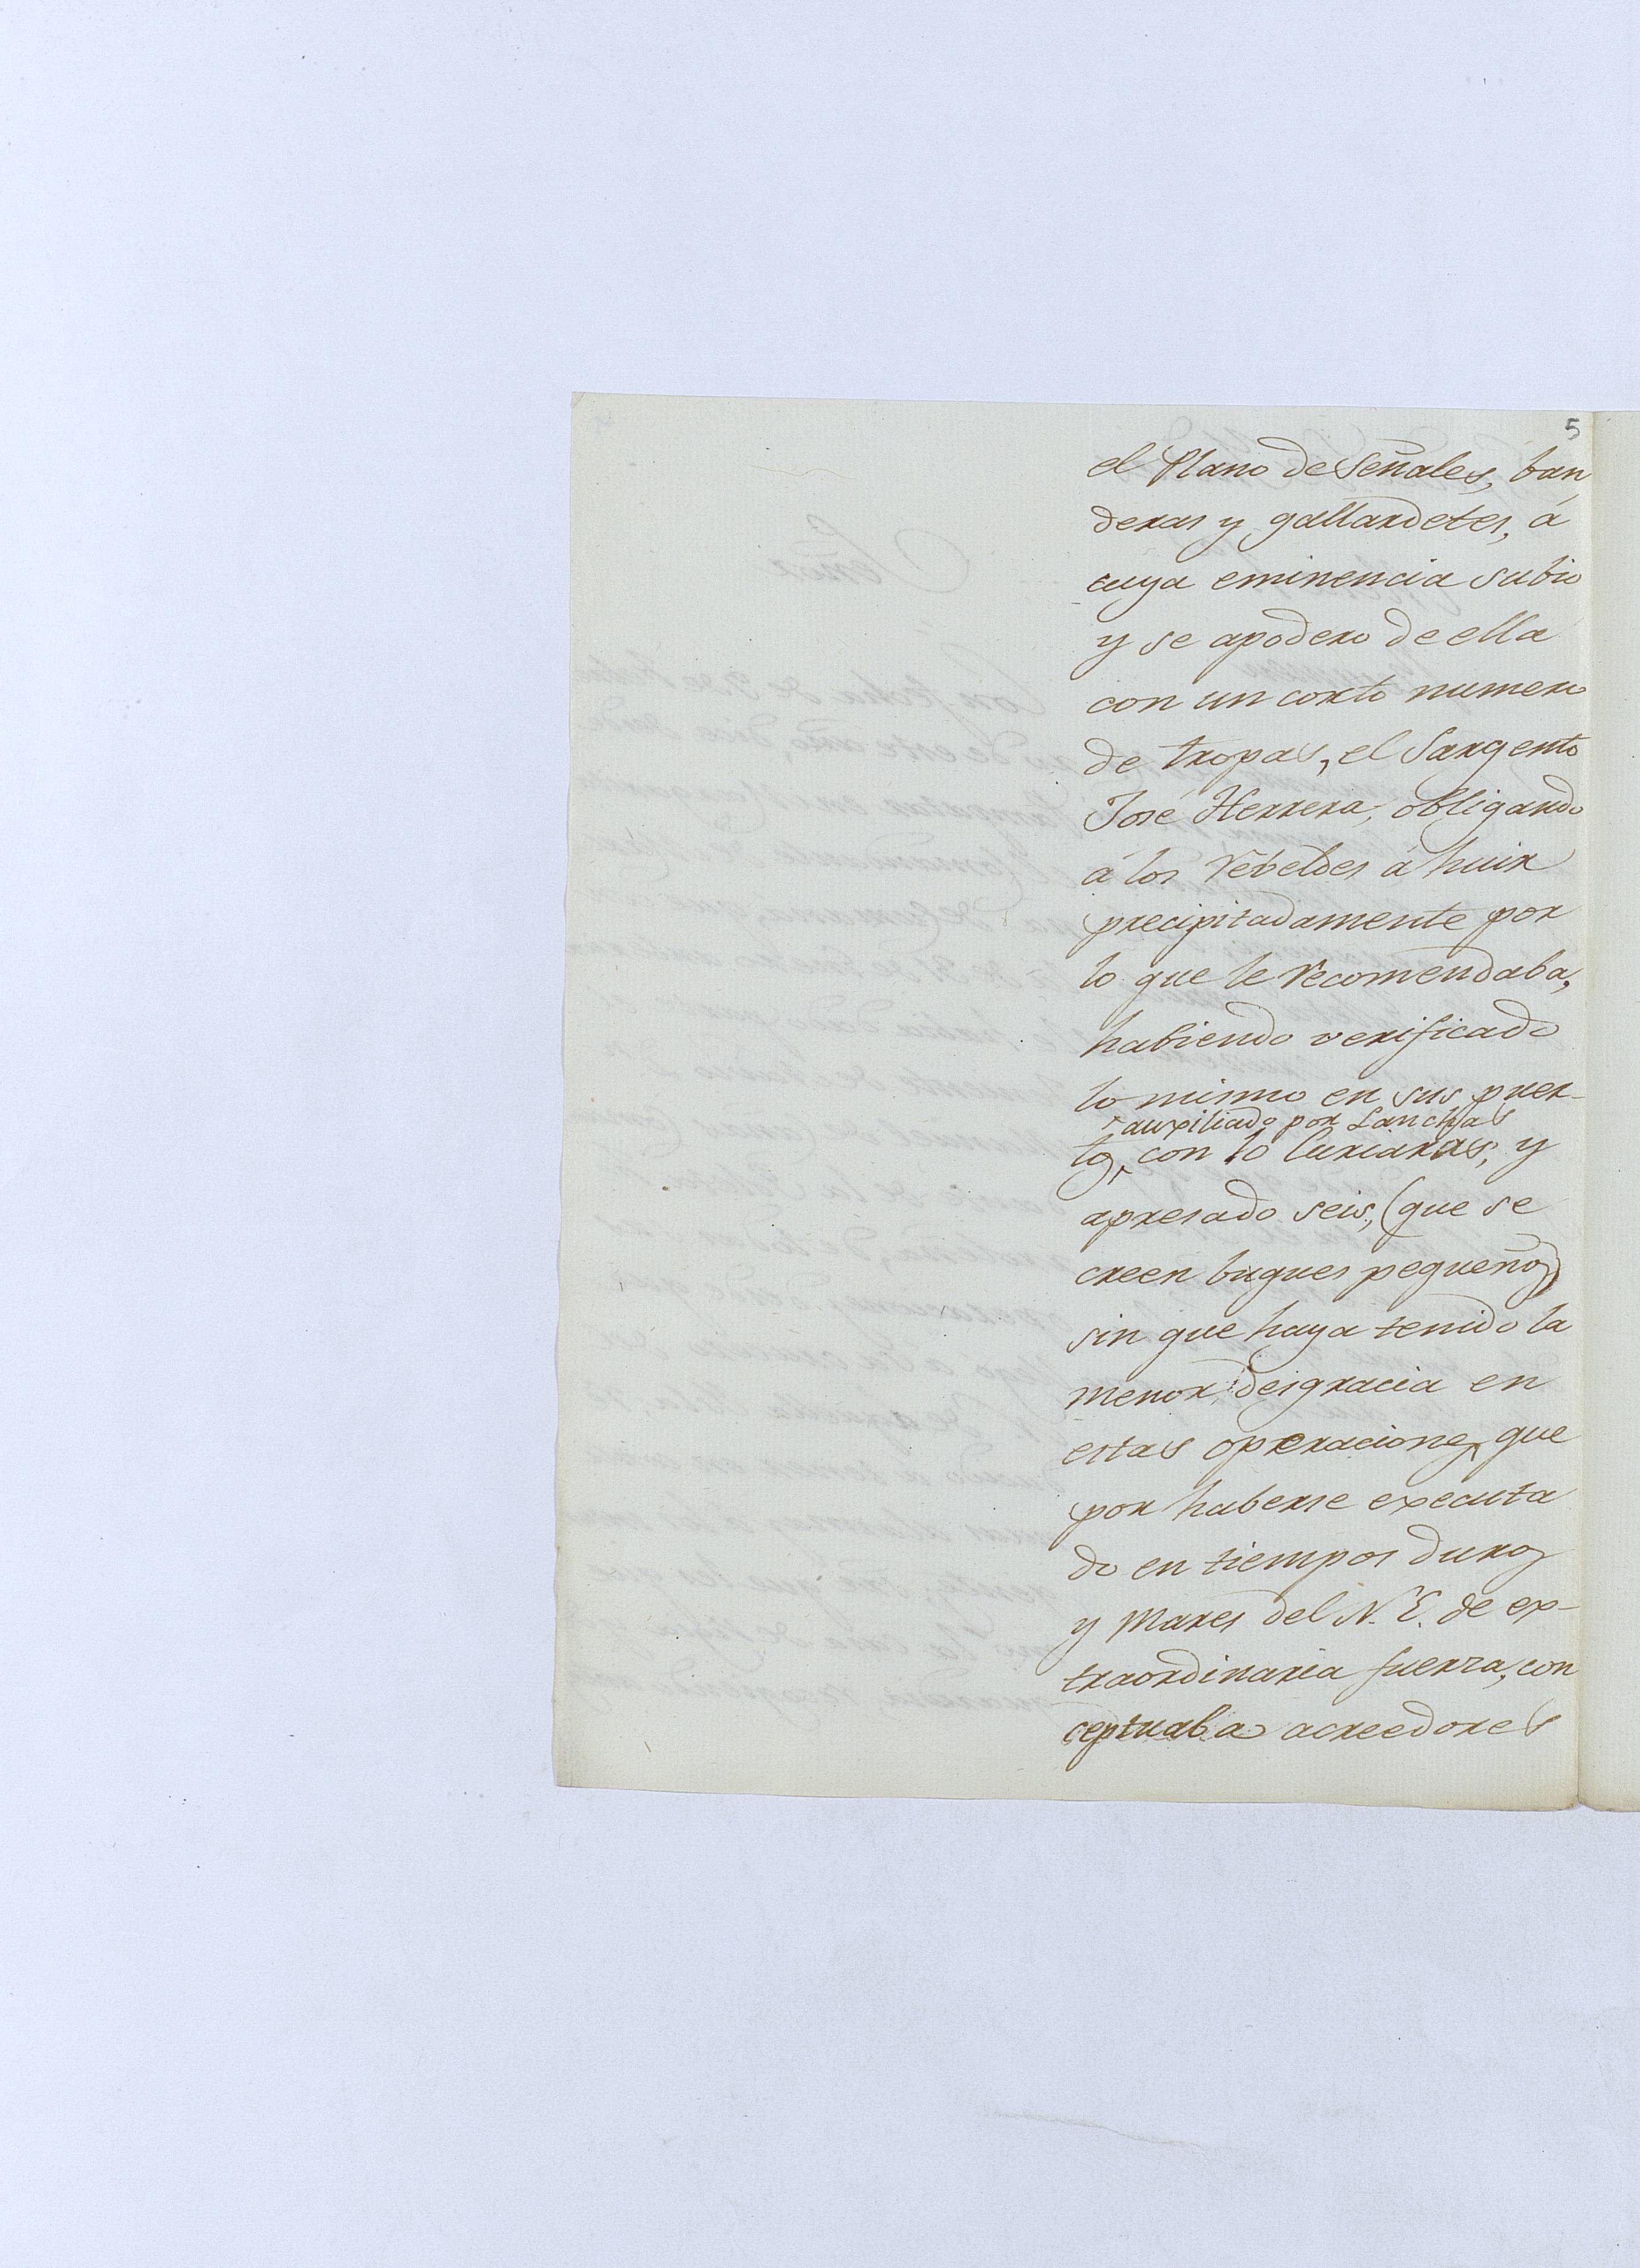 5
el Plano de Señales, ban
deras y gallardetes, á
cuya eminencia subio
y se apodero de ella
con un corto numero
de tropas, el Sargento
José Herrera, obligando
á los rebeldes á huir
precipitadamente por
lo que le recomendaba,
habiendo verificado
lo mismo en sus puer-
auxiliado por Lanchas
tos, con 10 Curiaras, y
apresado seis, (que se
creen buques pequeños)
sin que haya tenido la
menor desgracia en
estas operaciones, que
por haberse executa
do en tiempos duros
y Mares del N. E. de ex-
traordinaria fuerza, con
ceptuaba acreedores